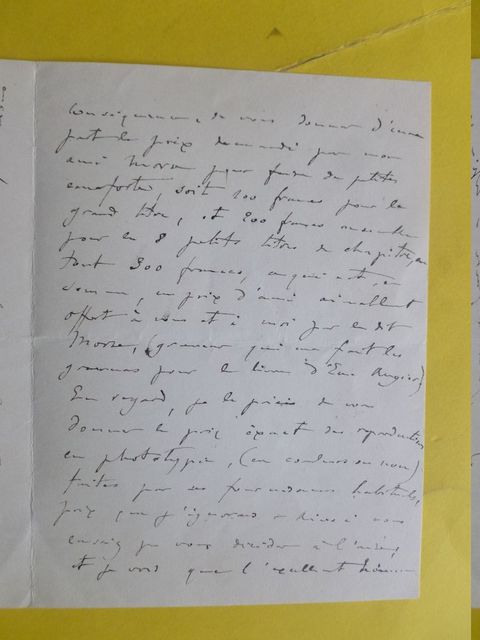 conséquence, de vous donner d'une
part le prix demandé par mon
ami Morse pour faire de petites
eaux fortes, soit 100 francs pour le
grand titre, et 200 francs ensemble
pour les 8 petits titres de chapitre, en
tout 300 francs, ce qui est, en
somme, un prix d'ami
offert à vous et à moi par le dit
Morse, (graveur qui me fait les
gravures pour le livre d'Em. Augier)
En regard, je le prie de vous
donner le prix exact des reproductions
en phototypie, (en couleurs ou non)
faites par ses fournisseurs habituels,
prix que j'ignorais à vous
vous décider à l'aise,
et je vois que l'excellent